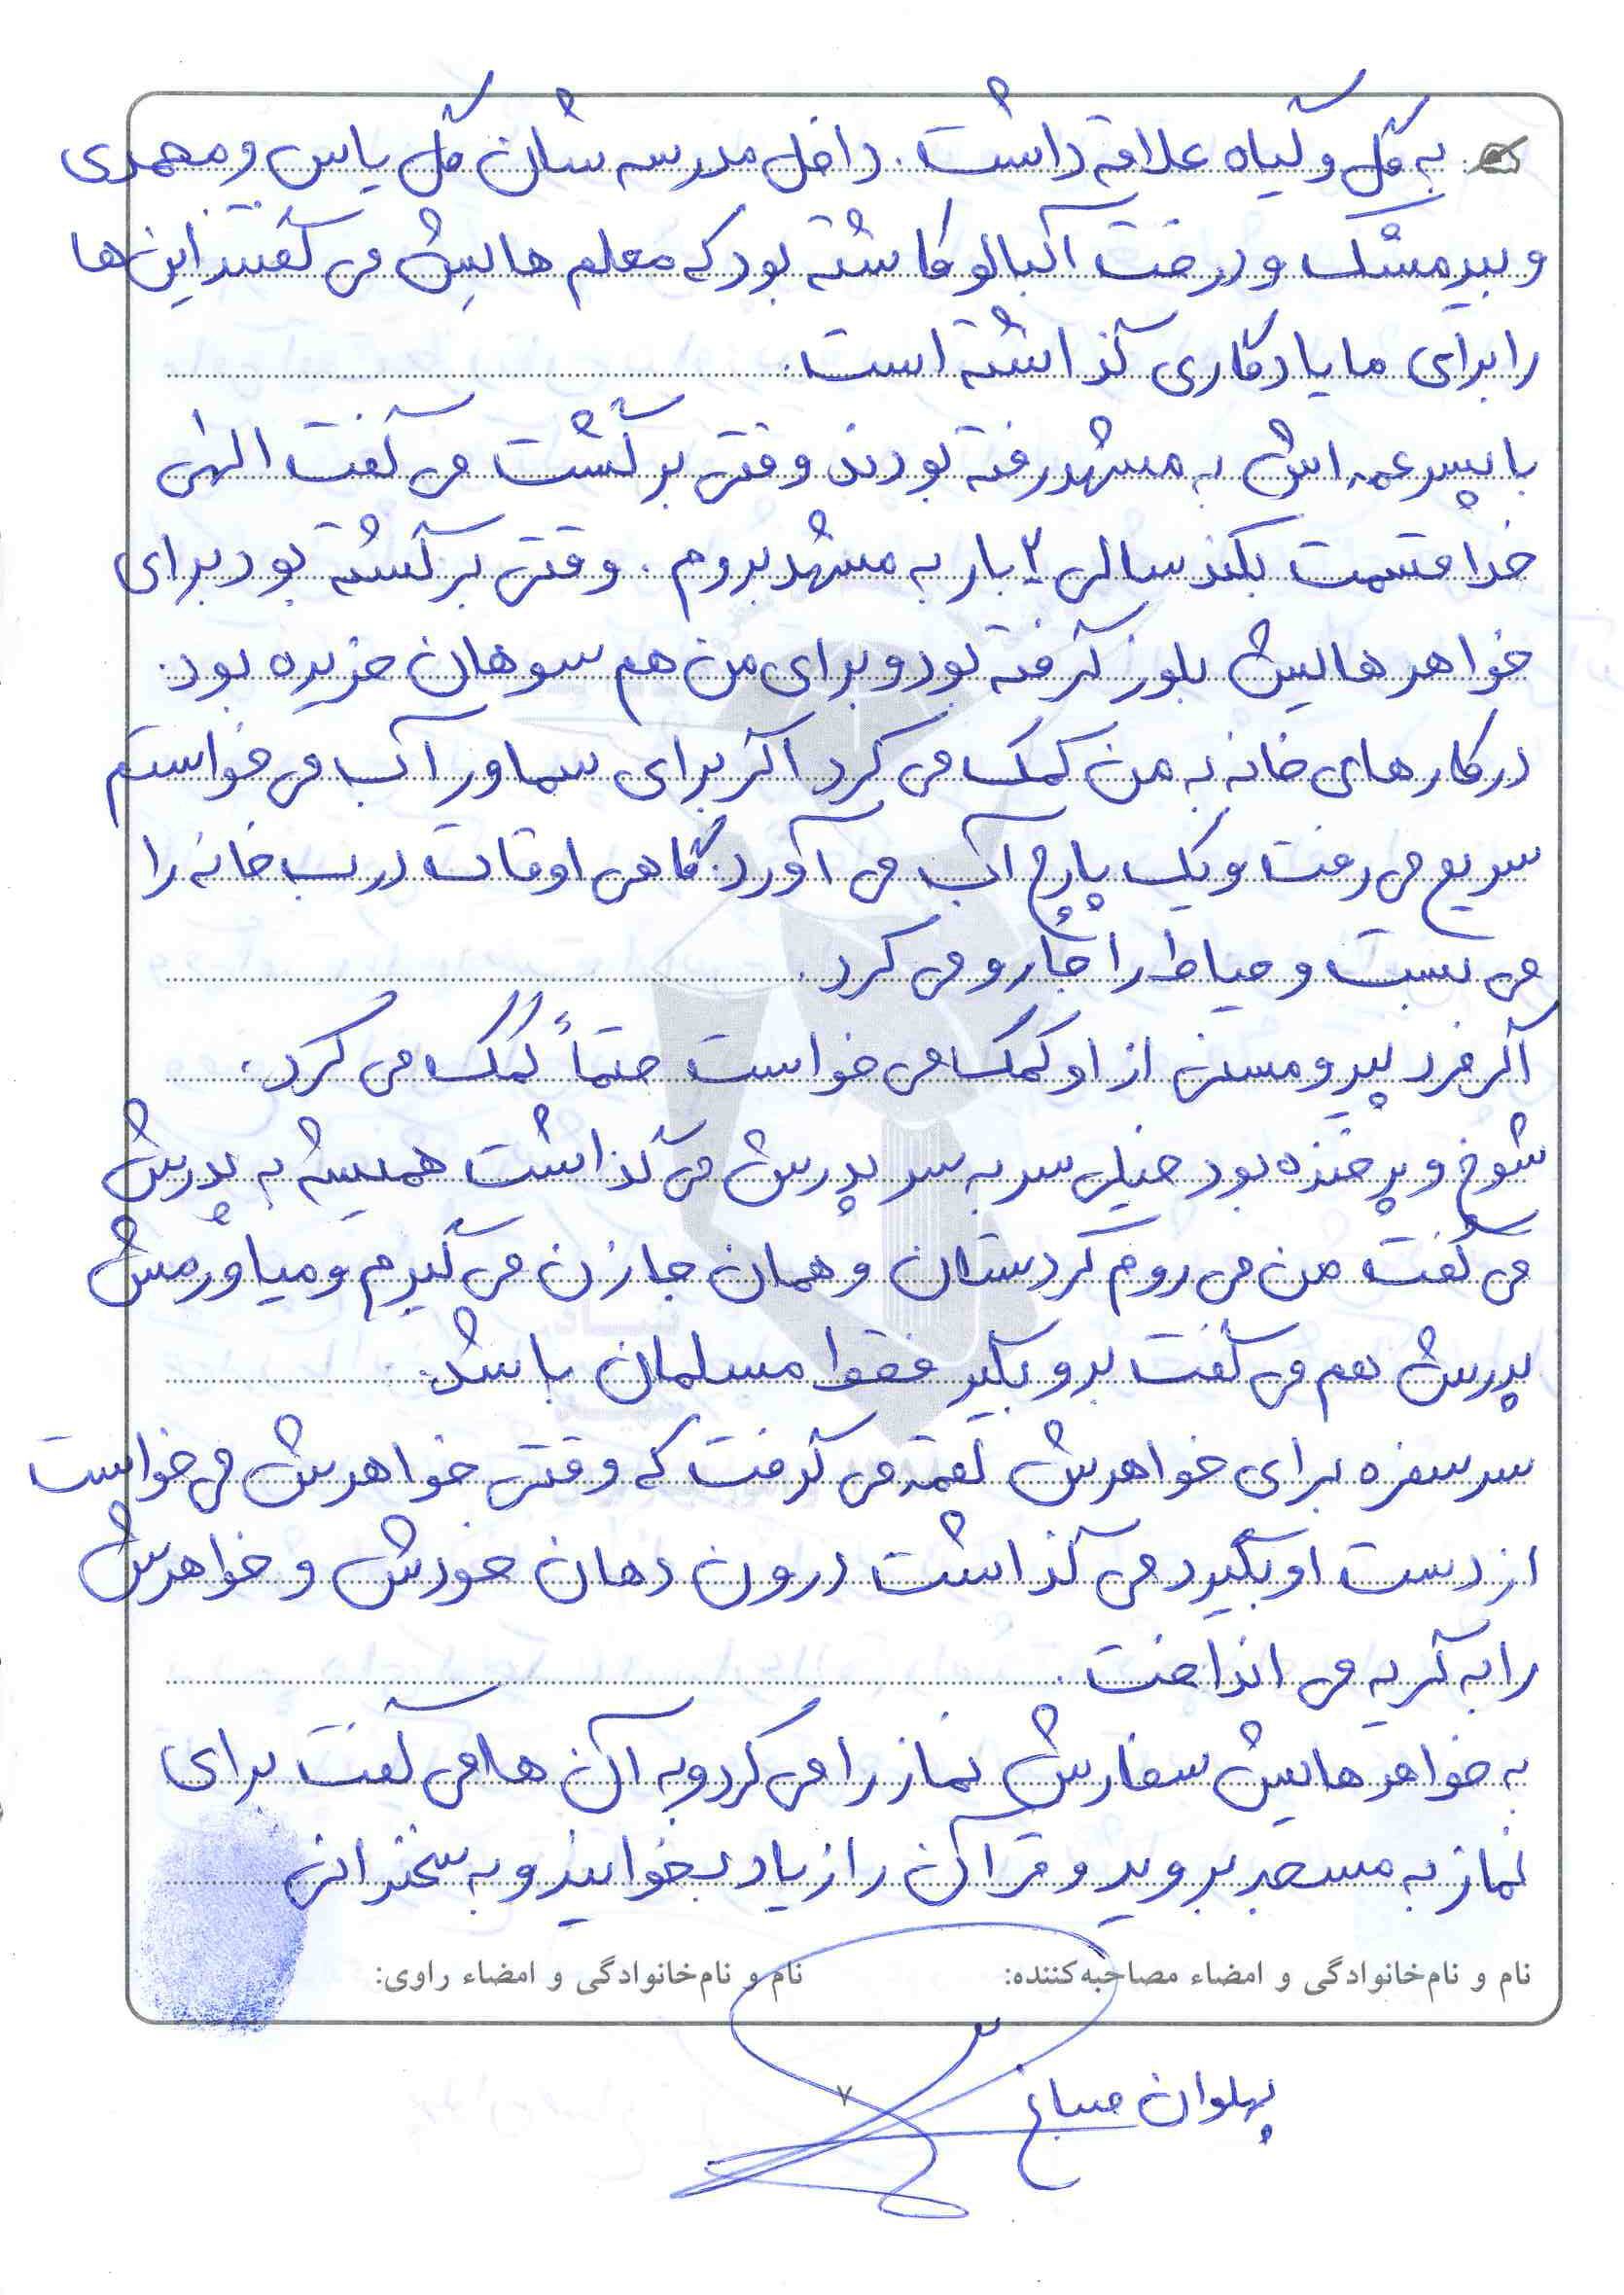 به گل و گیاه علاقه داشت. داخل مدرسه شان گل یاس و محمدی
و بیدمشک و درخت آلبالو کاشته بود که معلم هایش می گفتند این ها
را برای ما یادگاری گذاشته است.
با پسر عمه اش به مشهد رفته بودند وقتی برگشت می گفت الهی
خدا قسمت بکند سالی ۲ بار به مشهد بروم. وقتی برگشته بود برای
خواهرهایش بلوز گرفته بود و برای من هم سوهان خریده بود.
در کارهای خانه به من کمک می کرد اگر برای سماور آب می خواستم
سریع می رفت و یک پارچ آب می آورد. گاهی اوقات درب خانه را
می بست و حیاط را جارو می کرد.
اگر فرد پیر و مسنی از او کمک می خواست حتماً کمک می کرد.
شوخ و پر خنده بود خیلی سر به سر پدرش می گذاشت همیشه به پدرش
می گفت من می روم کردستان و همان جا زن می گیرم و میاورمش
پدرش هم می گفت برو بگیر فقط مسلمان باشد.
سر سفره برای خواهرش لقمه می گرفت که وقتی خواهرش می خواست
از دست او بگیرد می گذاشت درون دهان خودش و خواهرش
را به گریه می انداخت.
به خواهرهایش سفارش نماز را می کرد و به آن ها می گفت برای
نماز به مسجد بروید و قرآن را زیاد بخوانید و به سخنرانی
نام و نام‌خانوادگی و امضاء مصاحبه‌کننده: نام و نام‌خانوادگی و امضاء راوی:
پهلوان صباغ
۷